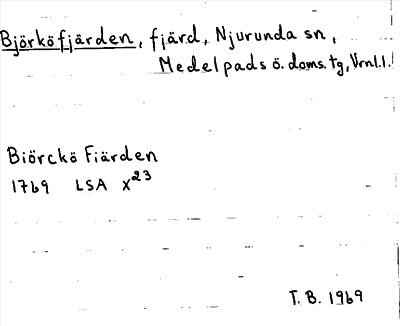 Björköfjärden, fjärd, Njurunda sn,
Medelpads ö. doms. tg, Vrnl. l.
Biörckö Fiärden
1769 LSA X23
T. B. 1969